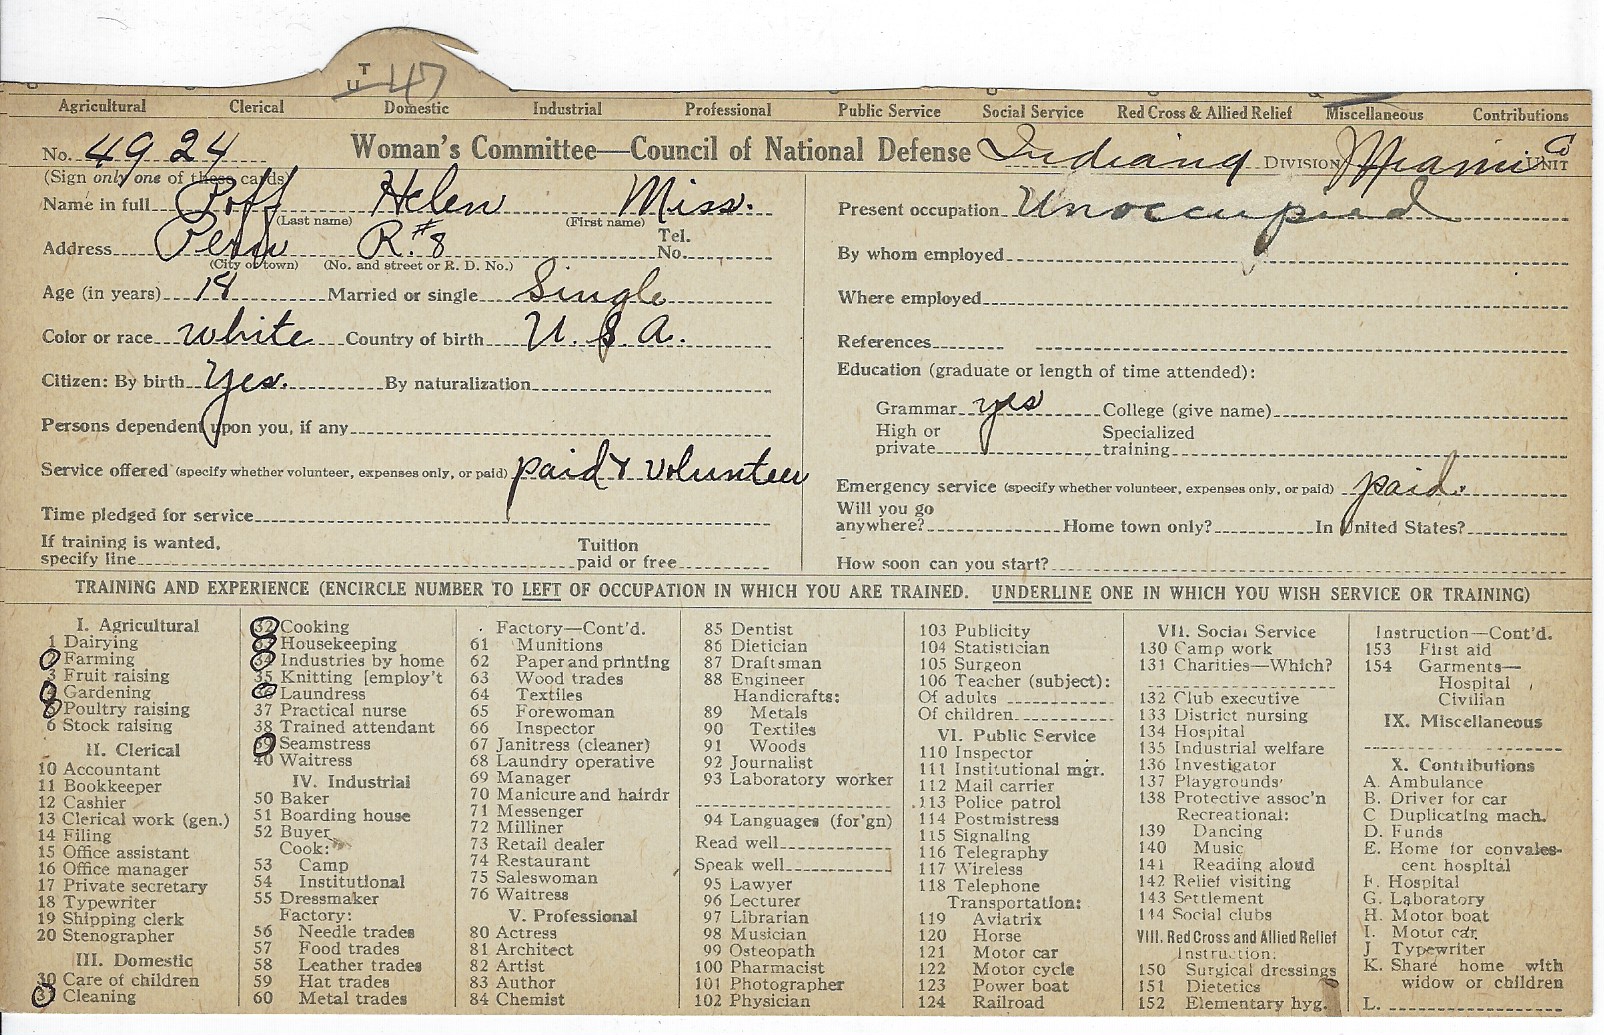 T
U 47
Agricultural Clerical Domestic Industrial Professional Public Service Social Service Red Cross & Allied Relief Miscellaneous Contributions
No. 4924 Woman's Committee—Council of National Defense Indiana DIVISION Miami Co UNIT
(Sign only one of these cards)
Name in full Poff Helen Miss.
(Last name) (First name)
Address Peru R.#8 Tel. No.
(City or town) (No. and street or R. D. No.)
Age (in years) 18 Married or single Single
Color or race white Country of birth U. S. A.
Citizen: By birth Yes. By naturalization
Persons dependent upon you, if any
Service offered (specify whether volunteer, expenses only, or paid) paid & volunteer
Time pledged for service
If training is wanted, specify line Tuition paid or free
Present occupation Unoccupied
By whom employed
Where employed
References
Education (graduate or length of time attended):
Grammar yes College (give name)
High or private Specialized training
Emergency service (specify whether volunteer, expenses only, or paid) paid.
Will you go anywhere? Home town only? In United States?
How soon can you start?
TRAINING AND EXPERIENCE (ENCIRCLE NUMBER TO LEFT OF OCCUPATION IN WHICH YOU ARE TRAINED. UNDERLINE ONE IN WHICH YOU WISH SERVICE OR TRAINING)
I. Agricultural
1 Dairying
2 Farming
3 Fruit raising
4 Gardening
5 Poultry raising
6 Stock raising
II. Clerical
10 Accountant
11 Bookkeeper
12 Cashier
13 Clerical work (gen.)
14 Filing
15 Office assistant
16 Office manager
17 Private secretary
18 Typewriter
19 Shipping clerk
20 Stenographer
III. Domestic
30 Care of children
31 Cleaning
32 Cooking
33 Housekeeping
34 Industries by home
35 Knitting [employ't
36 Laundress
37 Practical nurse
38 Trained attendant
39 Seamstress
40 Waitress
IV. Industrial
50 Baker
51 Boarding house
52 Buyer
Cook:
53 Camp
54 Institutional
55 Dressmaker
Factory:
56 Needle trades
57 Food trades
58 Leather trades
59 Hat trades
60 Metal trades
Factory—Cont'd.
61 Munitions
62 Paper and printing
63 Wood trades
64 Textiles
65 Forewoman
66 Inspector
67 Janitress (cleaner)
68 Laundry operative
69 Manager
70 Manicure and hairdr
71 Messenger
72 Milliner
73 Retail dealer
74 Restaurant
75 Saleswoman
76 Waitress
V. Professional
80 Actress
81 Architect
82 Artist
83 Author
84 Chemist
85 Dentist
86 Dietician
87 Draftsman
88 Engineer
Handicrafts:
89 Metals
90 Textiles
91 Woods
92 Journalist
93 Laboratory worker
94 Languages (for'gn)
Read well
Speak well
95 Lawyer
96 Lecturer
97 Librarian
98 Musician
99 Osteopath
100 Pharmacist
101 Photographer
102 Physician
103 Publicity
104 Statistician
105 Surgeon
106 Teacher (subject):
Of adults
Of children
VI. Public Service
110 Inspector
111 Institutional mgr.
112 Mail carrier
113 Police patrol
114 Postmistress
115 Signaling
116 Telegraphy
117 Wireless
118 Telephone
Transportation:
119 Aviatrix
120 Horse
121 Motor car
122 Motor cycle
123 Power boat
124 Railroad
VII. Social Service
130 Camp work
131 Charities—Which?
132 Club executive
133 District nursing
134 Hospital
135 Industrial welfare
136 Investigator
137 Playgrounds
138 Protective assoc'n
Recreational:
139 Dancing
140 Music
141 Reading aloud
142 Relief visiting
143 Settlement
144 Social clubs
VIII. Red Cross and Allied Relief
Instruction:
150 Surgical dressings
151 Dietetics
152 Elementary hyg.
Instruction—Cont'd.
153 First aid
154 Garments—
Hospital
Civilian
IX. Miscellaneous
X. Contributions
A. Ambulance
B. Driver for car
C Duplicating mach.
D. Funds
E. Home for convales-
cent hospital
F. Hospital
G. Laboratory
H. Motor boat
I. Motor car
J Typewriter
K. Share home with
widow or children
L.